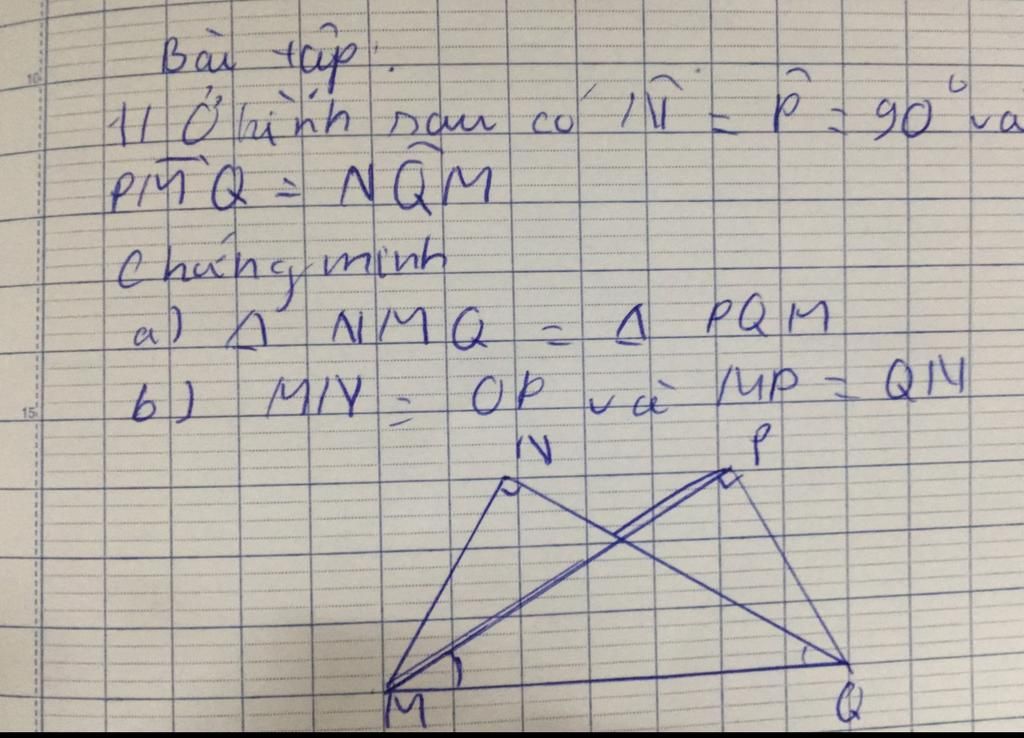 Bài tập:
1/ Ở hình sau có N̂ = P̂ = 90° và
PM̂Q = NQ̂M
Chứng minh
a) Δ NMQ = Δ PQM
b) MN = QP và MP = QN
N P
M Q
10
15